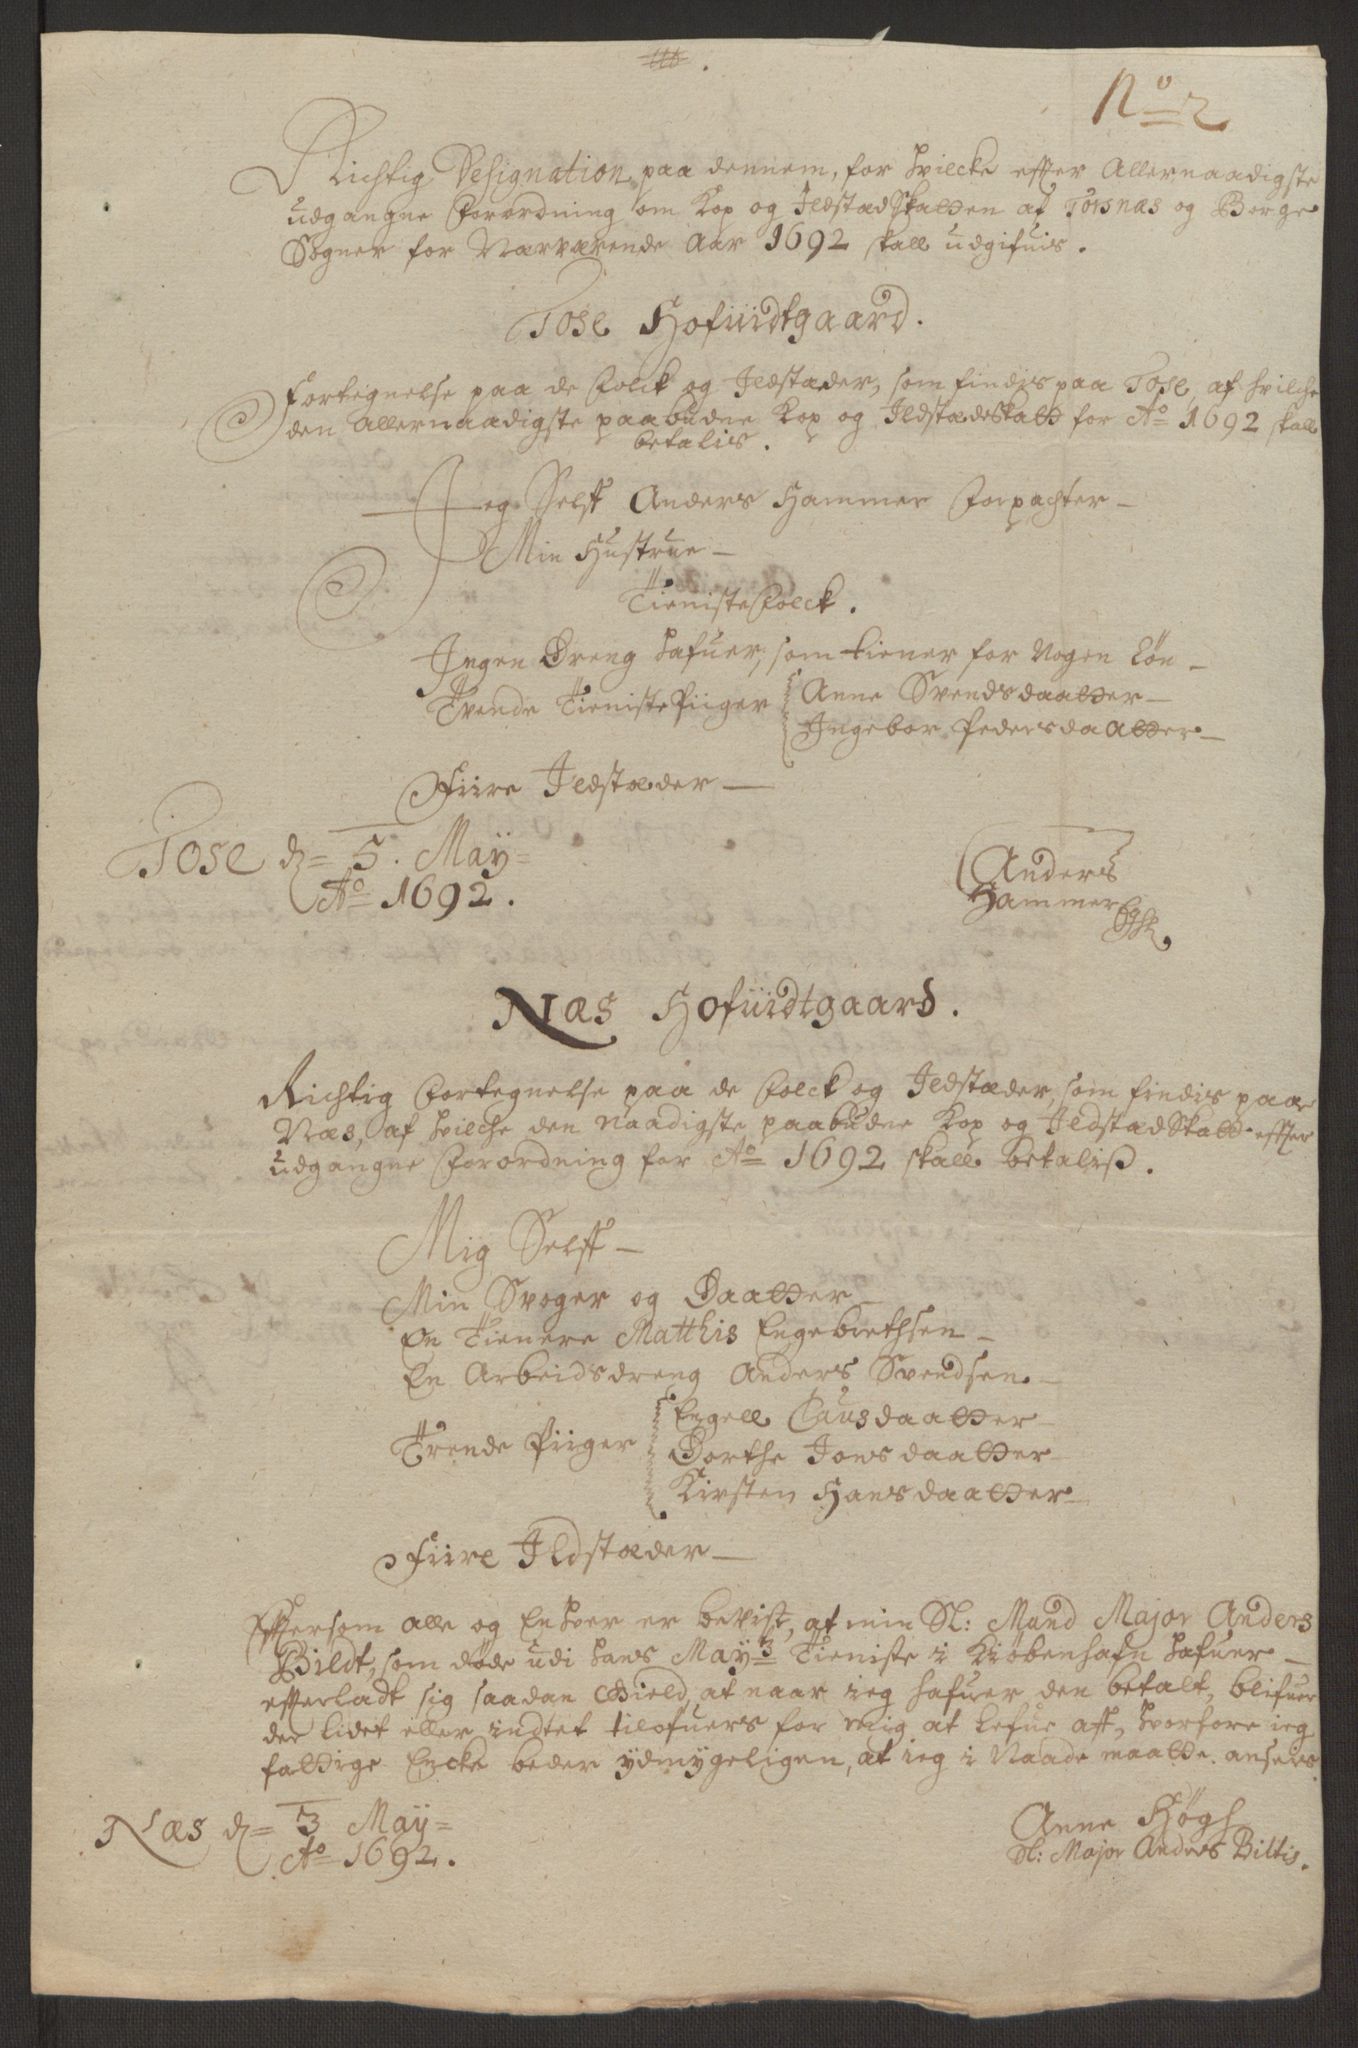 No 2
Richtig Designation paa dennem, for hvilcke effter Allernaadigste
udgangne Forordning om Kop og Ildstædskatten af Torsnæs og Borge
Sogner for Nærværende Aar 1692 skall udgifuis.
Tose Hofuidtgaard.
Fortegnelse paa de Folck og Ildstæder, som findis paa Tose, af hvilche
den allernaadigste paabudne Kop og Ildstædeskatt for Ao 1692 skall
betalis.
Jeg Selff Anders Hammer Forpachter –
Min Hustrue –
TienisteFolck.
Ingen Dreng hafuer, som tiener for Nogen Løn –
Tvende Tieniste Piiger Anne Svendsdaatter –
Ingebor Pedersdaatter –
Fiire Ildstæder –
Tose d= 5. May=
Ao 1692.
Anders
Hammer
Næs Hofuidtgaard.
Richtig Fortegnelse paa de Folck og Ildstæder, som findis paa
Næs, af hvilche den naadigste paabudne Kop og Ildstæd Skatt effter
udgangne Forordning for Ao 1692 skall betaliß.
Mig Selff –
Min Svoger og Daatter –
En Tienere Matthis Engebrethsen –
En Arbeidsdreng Anders Svendsen –
Trende Piiger Engell Clausdaatter –
Dorthe Jonsdaatter –
Kirsten Hansdaatter –
Fiire Ildstæder –
Efftersom alle og Enhver er bevist, at min Sl: Mand Major Anders
Bildt, som døde udi hans May:s Tieniste i Kiøbenhafn hafuer –
efterladt sig saadan Gield, at naar ieg hafuer den betalt, blifuer
der lidet eller indtet tilofuers for mig at lefue aff, hvorfore ieg
fattige Encke beder ydmygeligen, at ieg i Naade maatte ansees.
Næs d= 3 May=
Ao 1692.
Anne Høgh
Sl: Major Anders Biltis.